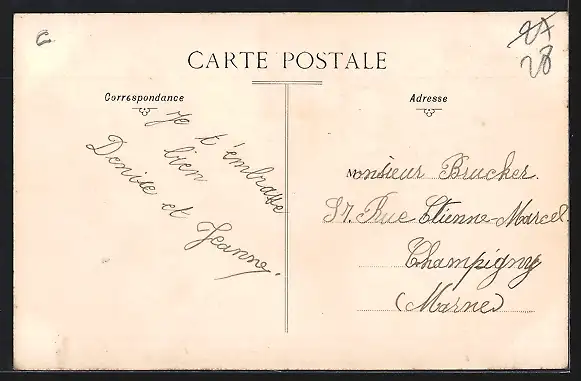 C
27
28
CARTE POSTALE
Correspondance
Adresse
Je t'embrasse
bien
Denise et Jeanne.
Monsieur Brucker.
Rue Etienne-Marcel.
Champigny
(Marne)